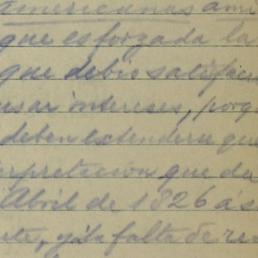 americanas ami
que esforzada la
que debió satisfac
usar intereses, porq
deben extenderse que
erpretacion que da
Abril de 1826 á s
te, y á la falta de re